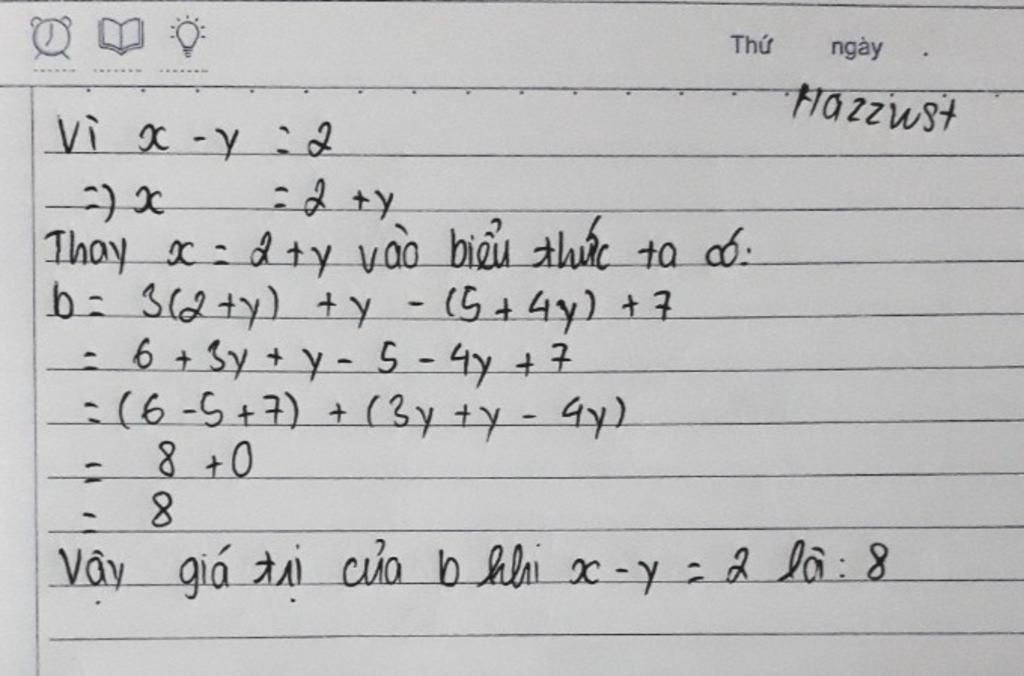 Thứ ngày .
Hazzwst
Vì x - y = 2
=> x = 2 + y
Thay x = 2 + y vào biểu thức ta có:
b = 3(2+y) + y - (5 + 4y) + 7
= 6 + 3y + y - 5 - 4y + 7
= (6 - 5 + 7) + (3y + y - 4y)
= 8 + 0
= 8
Vậy giá trị của b khi x - y = 2 là: 8